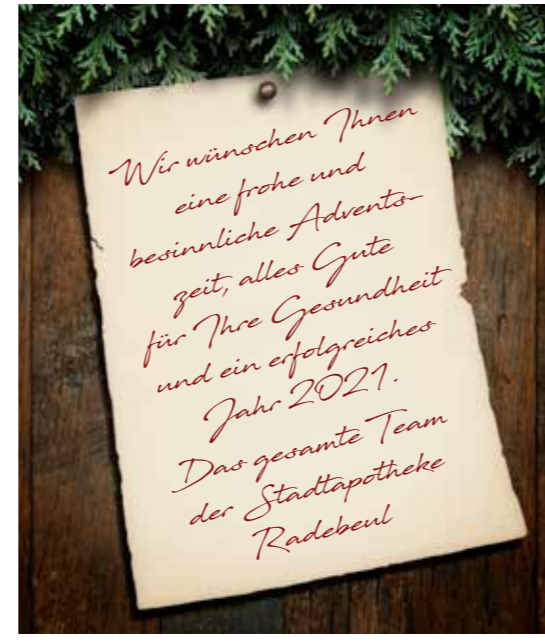 Wir wünschen Ihnen
eine frohe und
besinnliche Advents-
zeit, alles Gute
für Ihre Gesundheit
und ein erfolgreiches
Jahr 2021.
Das gesamte Team
der Stadtapotheke
Radebeul